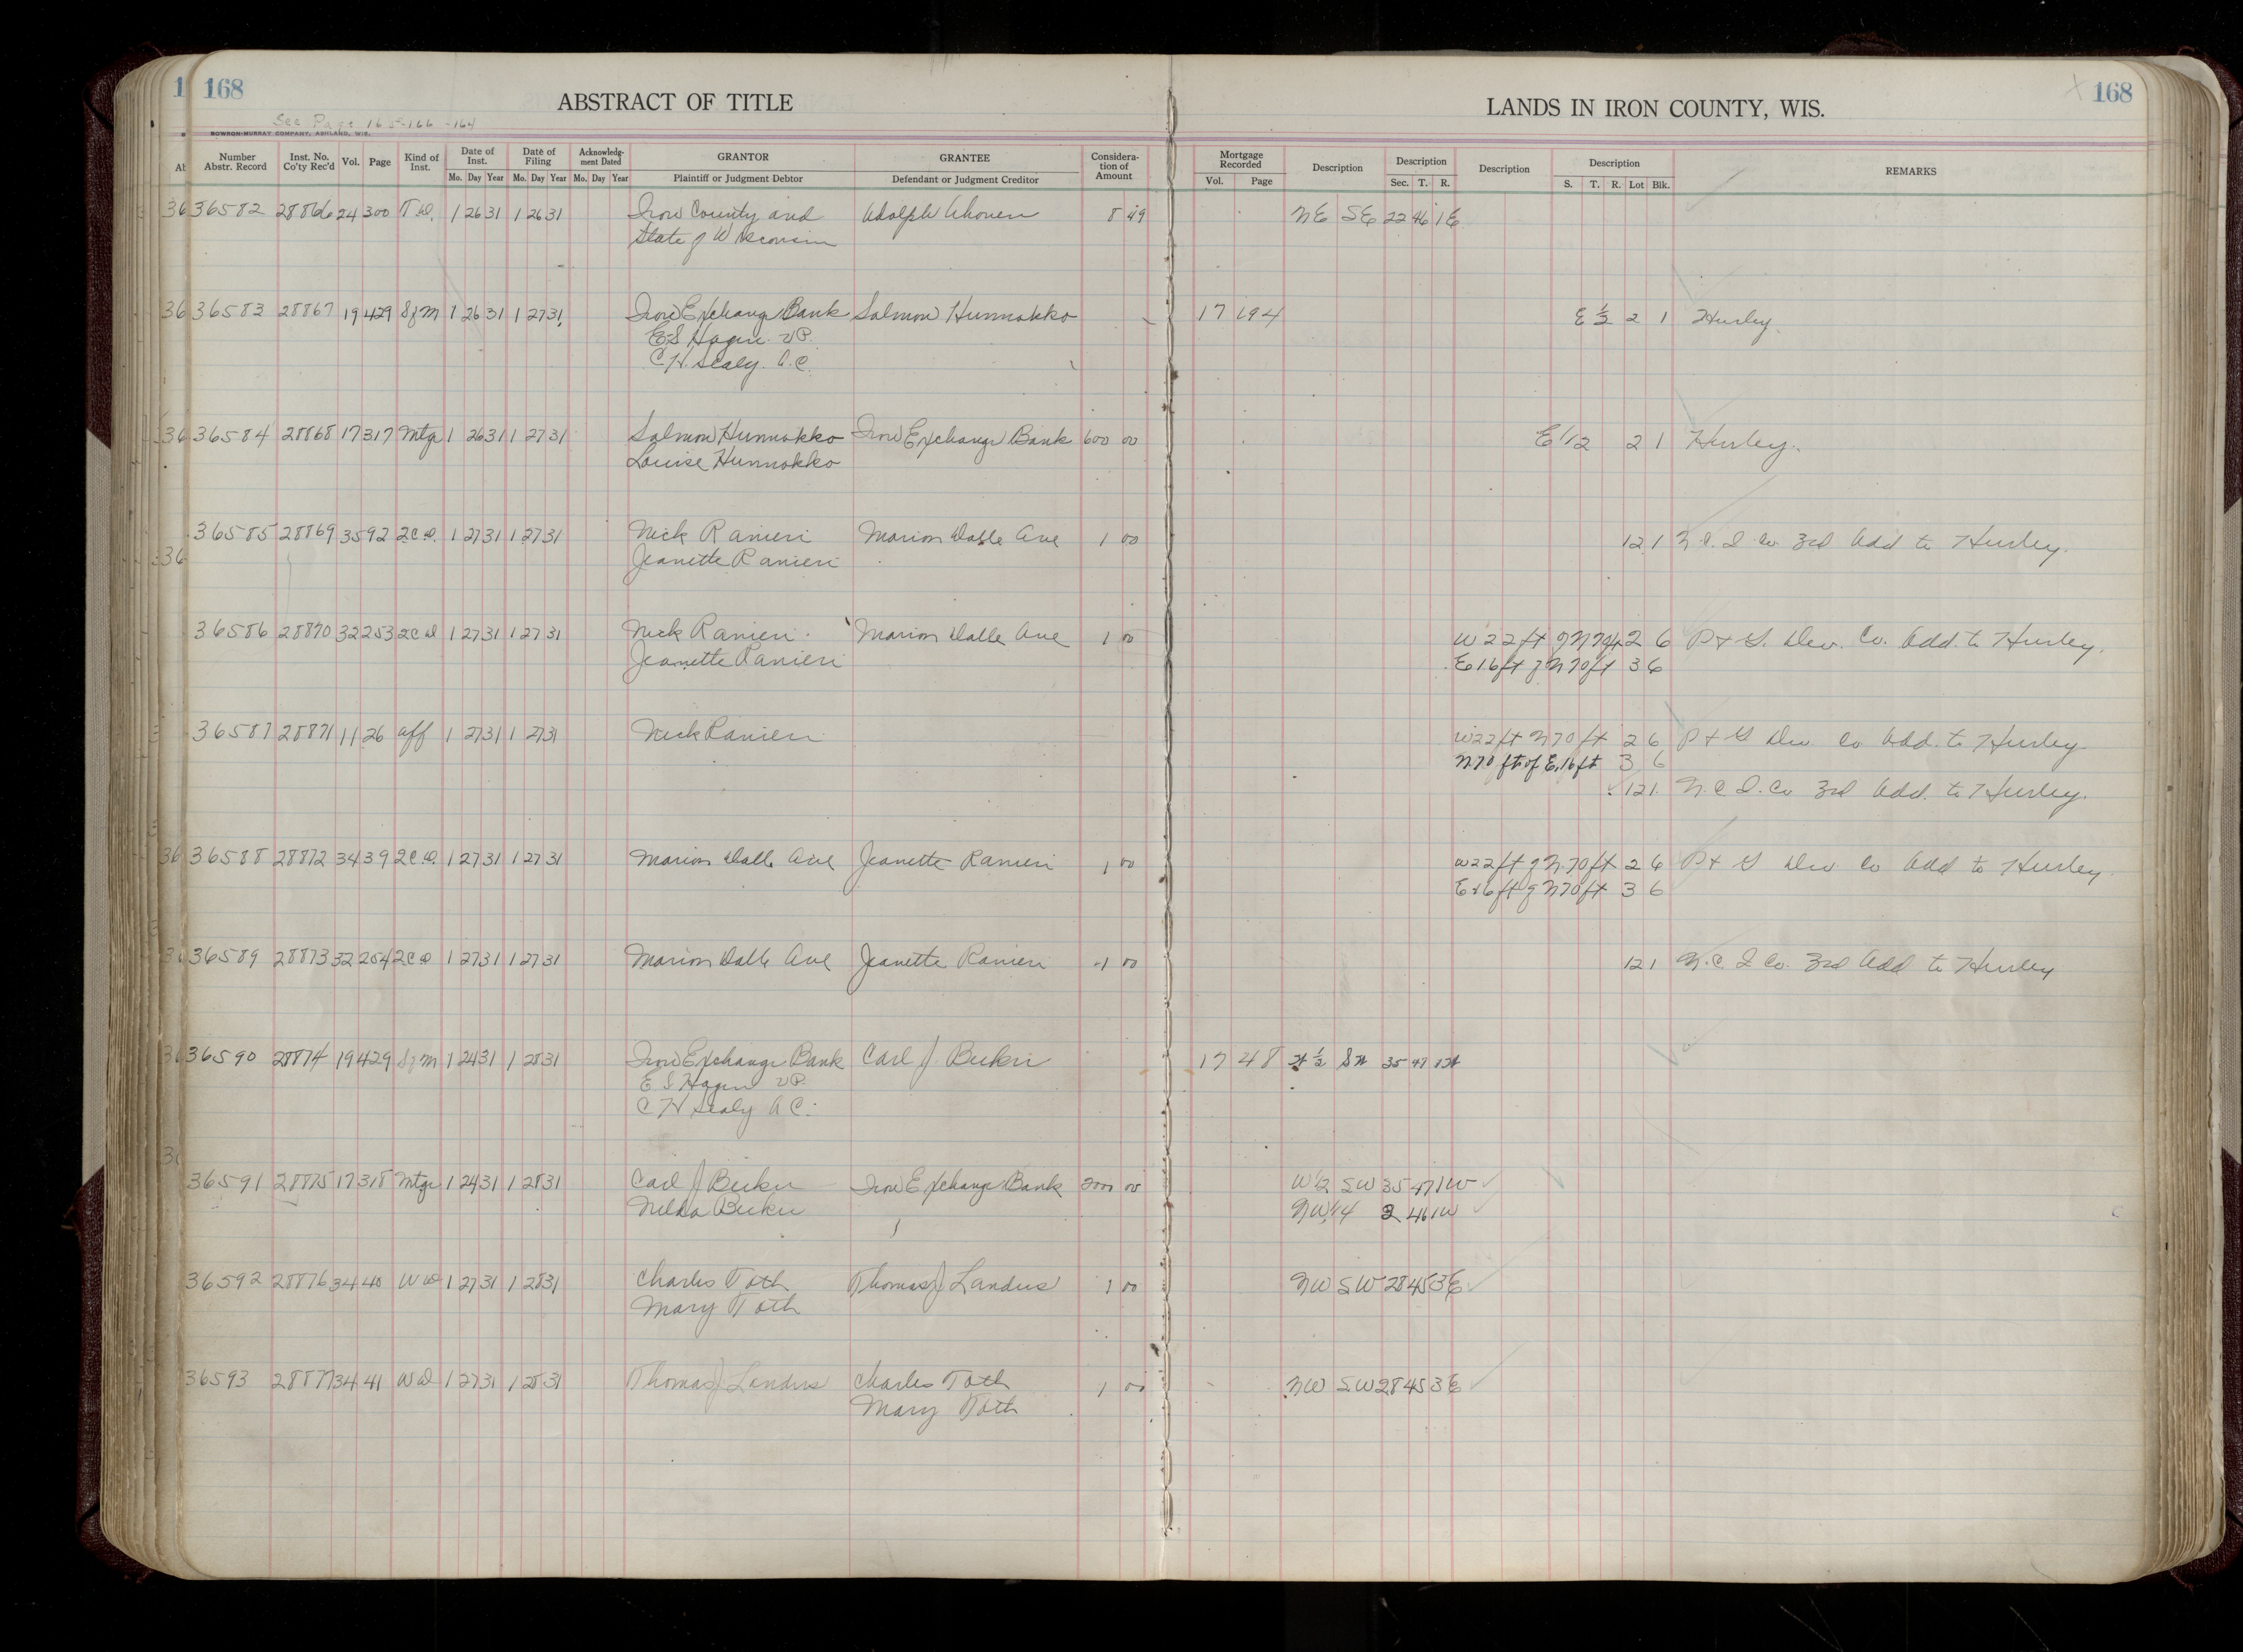 168
ABSTRACT OF TITLE
LANDS IN IRON COUNTY, WIS.
168
See Page 165-166-164
BOWRON-MURRAY COMPANY, ASHLAND, WIS.
Number Abstr. Record Inst. No. Co'ty Rec'd Vol. Page Kind of Inst. Date of Inst. Mo. Day Year Date of Filing Mo. Day Year Acknowledg-ment Dated Mo. Day Year GRANTOR Plaintiff or Judgment Debtor GRANTEE Defendant or Judgment Creditor Considera-tion of Amount Mortgage Recorded Vol. Page Description Description Sec. T. R. Description Description S. T. R. Lot Blk. REMARKS
36582 28866 24 300 T.D. 1 26 31 1 26 31 Iron County and Adolph Ahonen 8 49 NE SE 22 46 1E
State of Wisconsin
36583 28867 19 429 Sfm 1 26 31 1 27 31 Iron Exchange Bank Salmon Hunnakko 17 194 E 1/2 2 1 Hurley.
E.S. Hagen V.P.
C.H. Sealy. A.C.
36584 28868 17 317 Mtg 1 26 31 1 27 31 Salmon Hunnakko Iron Exchange Bank 600 00 E 1/2 2 1 Hurley.
Louise Hunnakko
36585 28869 35 92 2C.D. 1 27 31 1 27 31 Nick Ranieri Marion Dalle Ave 1 00 12 1 N.C.I. Co. 3rd Add to Hurley.
Jeanette Ranieri
36586 28870 32 253 2CD 1 27 31 1 27 31 Nick Ranieri Marion Dalle Ave 1 00 W 22 ft of N 70 ft 2 6 P & G. Dev. Co. Add. to Hurley.
Jeanette Ranieri E 16 ft of N 70 ft 3 6
36587 28871 11 26 Aff 1 27 31 1 27 31 Nick Ranieri W 22 ft N 70 ft 2 6 P & G Dev. Co Add. to Hurley
N 70 ft of E. 16 ft 3 6
12 1. N.C.I. Co 3rd Add. to Hurley.
36588 28872 34 39 2C.D. 1 27 31 1 27 31 Marion Dalle Ave Jeanette Ranieri 1 00 W 22 ft of N. 70 ft 2 6 P & G Dev Co Add to Hurley.
E 16 ft of N 70 ft 3 6
36589 28873 32 254 2CD 1 27 31 1 27 31 Marion Dalle Ave Jeanette Ranieri 1 00 12 1 N.C.I Co. 3rd Add to Hurley
36590 28874 19 429 Sfm 1 24 31 1 28 31 Iron Exchange Bank Carl J Becker 17 48 1/2 35 47
E.S Hagen VP.
C H Sealy A.C.
36591 28875 17 318 Mtg 1 24 31 1 28 31 Carl J Becker Iron Exchange Bank 2000 00 W 1/2 SW 35 47 1W
Becker NW 1/4 2 46 1W
36592 28876 34 40 WD 1 27 31 1 28 31 Charles Toth Thomas J Landus 1 00 NW SW 28 45 3E
Mary Toth
36593 28877 34 41 WD 1 27 31 1 28 31 Thomas J Landus Charles Toth 1 00 NW SW 28 45 3E
Mary Toth